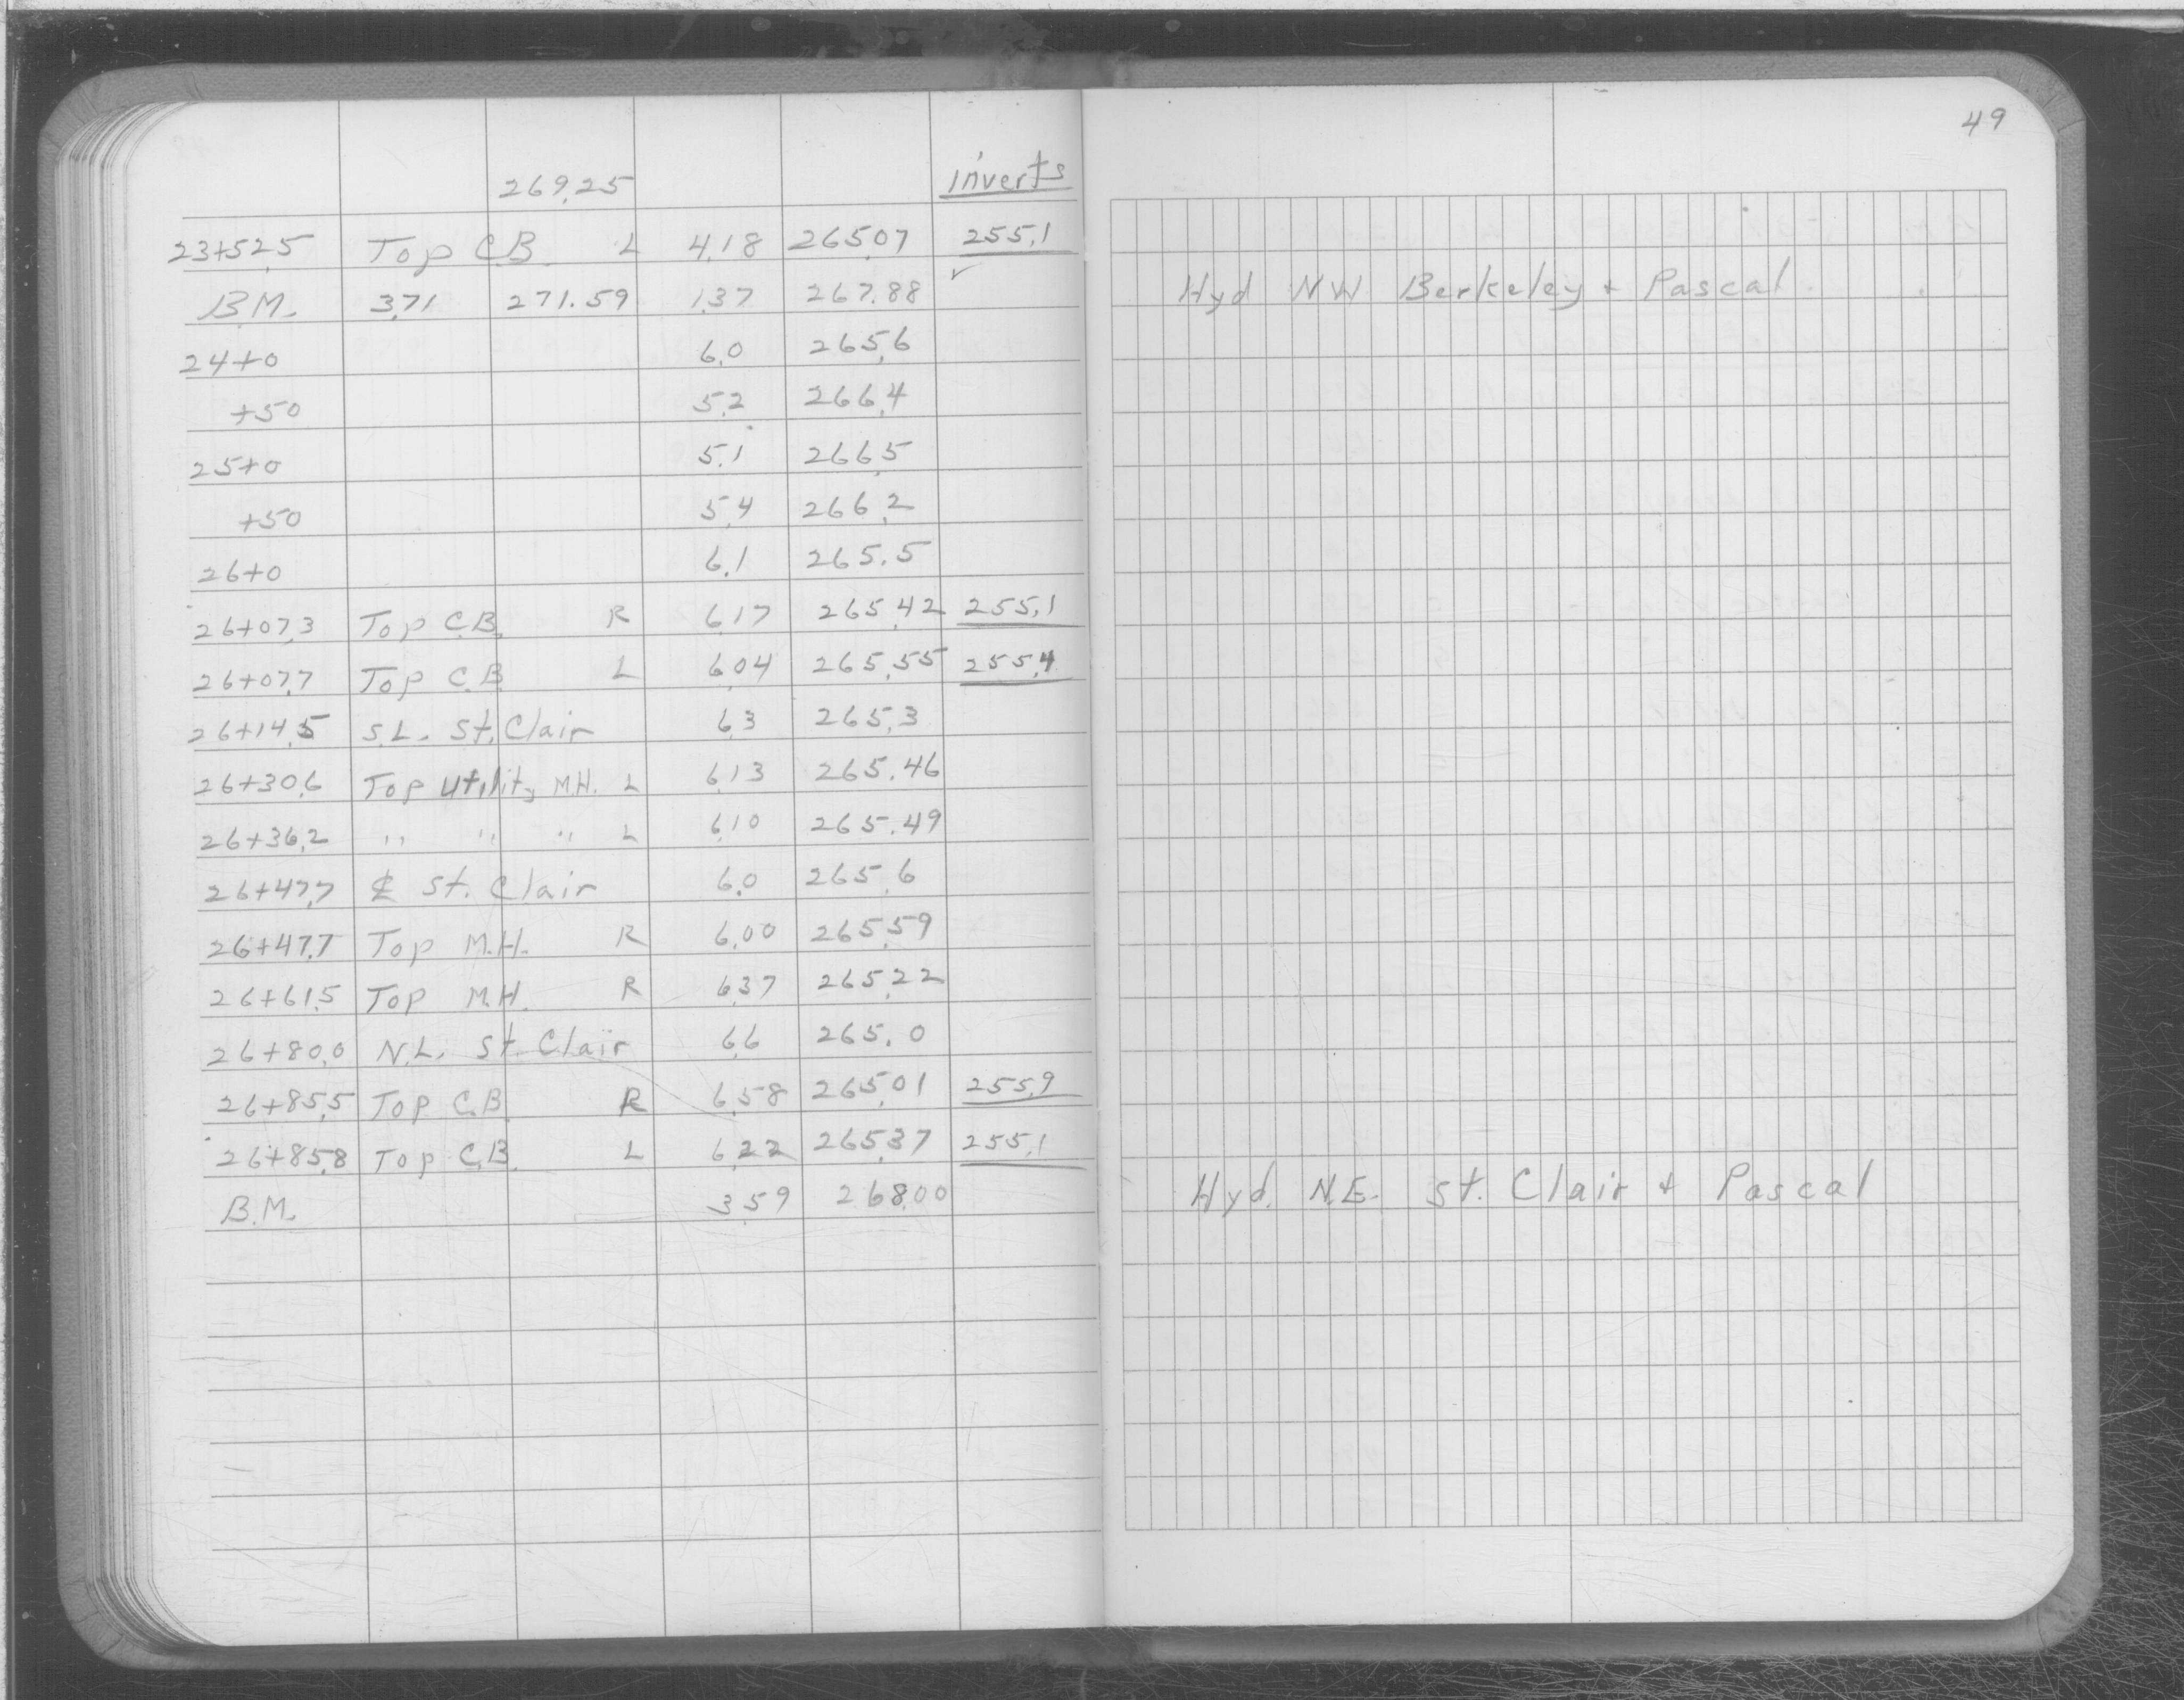 49
269.25 inverts
23+52.5 Top C.B. L 4.18 265.07 255.1
B.M. 3.71 271.59 1.37 267.88 ✓ Hyd NW Berkeley + Pascal
24+0 6.0 265.6
+50 5.2 266.4
25+0 5.1 266.5
+50 5.4 266.2
26+0 6.1 265.5
26+07.3 Top C.B. R 6.17 265.42 255.1
26+07.7 Top C.B. L 6.04 265.55 255.4
26+14.5 S.L. St. Clair 6.3 265.3
26+30.6 Top Utility M.H. L 6.13 265.46
26+36.2 " " " L 6.10 265.49
26+47.7 ℄ St. Clair 6.0 265.6
26+47.7 Top M.H. R 6.00 265.59
26+61.5 Top M.H. R 6.37 265.22
26+80.0 N.L. St. Clair 6.6 265.0
26+85.5 Top C.B. R 6.58 265.01 255.9
26+85.8 Top C.B. L 6.22 265.37 255.1
B.M. 3.59 268.00 Hyd. N.E. St. Clair + Pascal